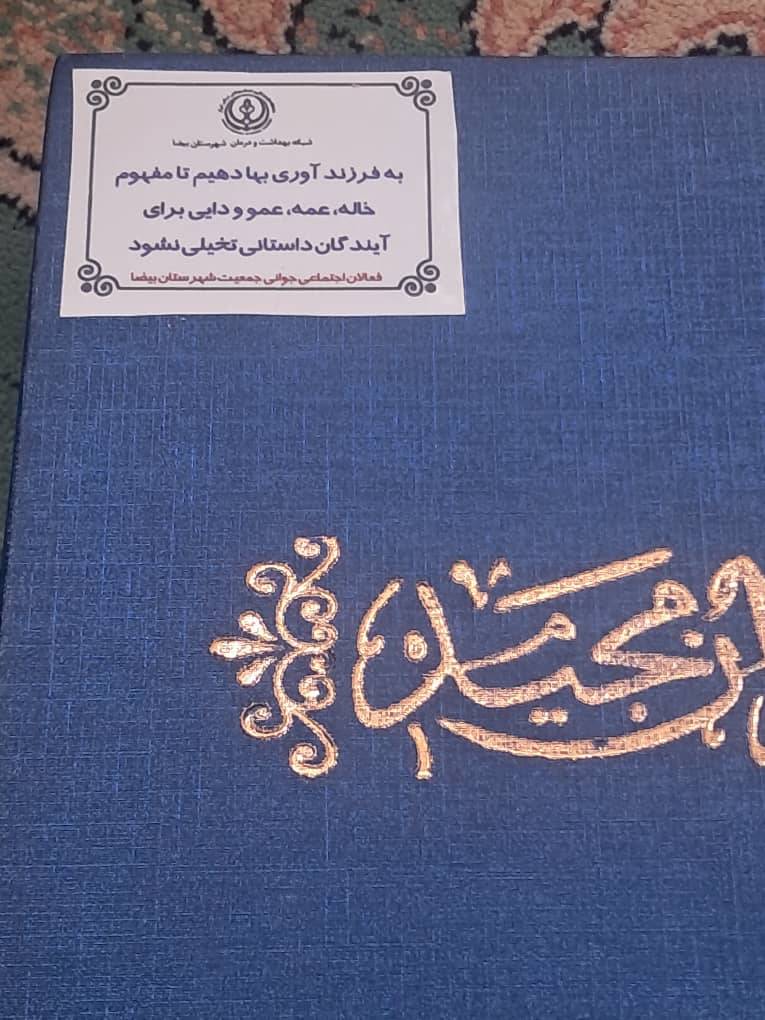 شبکه بهداشت و درمان شهرستان بیضا
به فرزند آوری بها دهیم تا مفهوم
خاله، عمه، عمو و دایی برای
آیندگان داستانی تخیلی نشود
فعالان اجتماعی جوانی جمعیت شهرستان بیضا
مجید